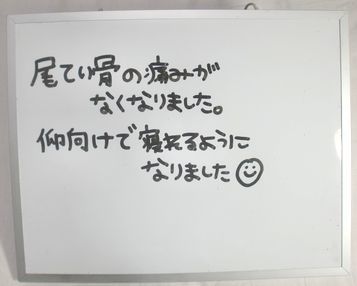 尾てい骨の痛みが
なくなりました。
仰向けで寝れるように
なりました☺